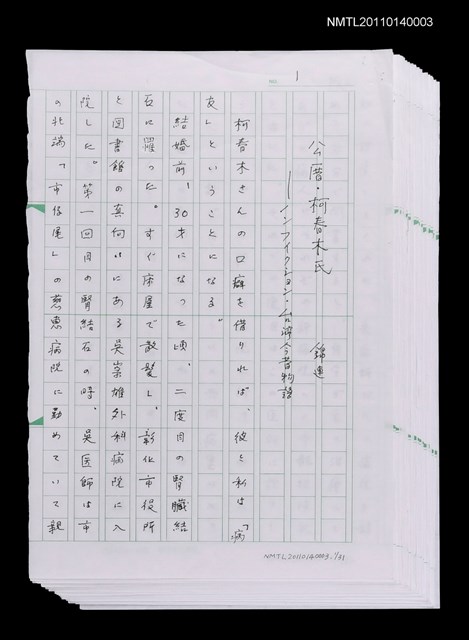 NMTL20110140003
1
公厝・柯春木氏 錦連
──インフィクション・台湾今昔物語
柯春木さんの口癖を借りれば、彼と私は「病
友」ということになる。
結婚前、30才になった頃、二度目の腎臓結
石に罹った。すぐ床屋で散髪し、彰化市役所
と図書館の真向いにある呉崇雄外科病院に入
院した。第一回目の腎結石の時、呉医師は市
の北端「市仔尾」の慈恵病院に勤めていて親
NMTL20110140003.1/31